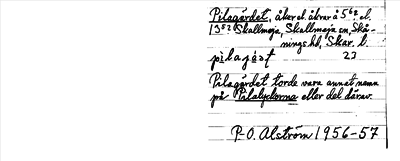 Pilagärdet, åker el. åkrar å 5⁶² el.
13⁸² Skallmeja, Skallmeja sn, Skå-
nings hd, Skar. l.
pilajä̀ʃt 23
Pilagärdet torde vara annat namn
på Pilalyckorna eller del därav.
P-O. Alström 1956-57